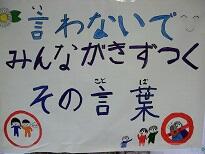 言わないで
みんながきずつく
その言葉